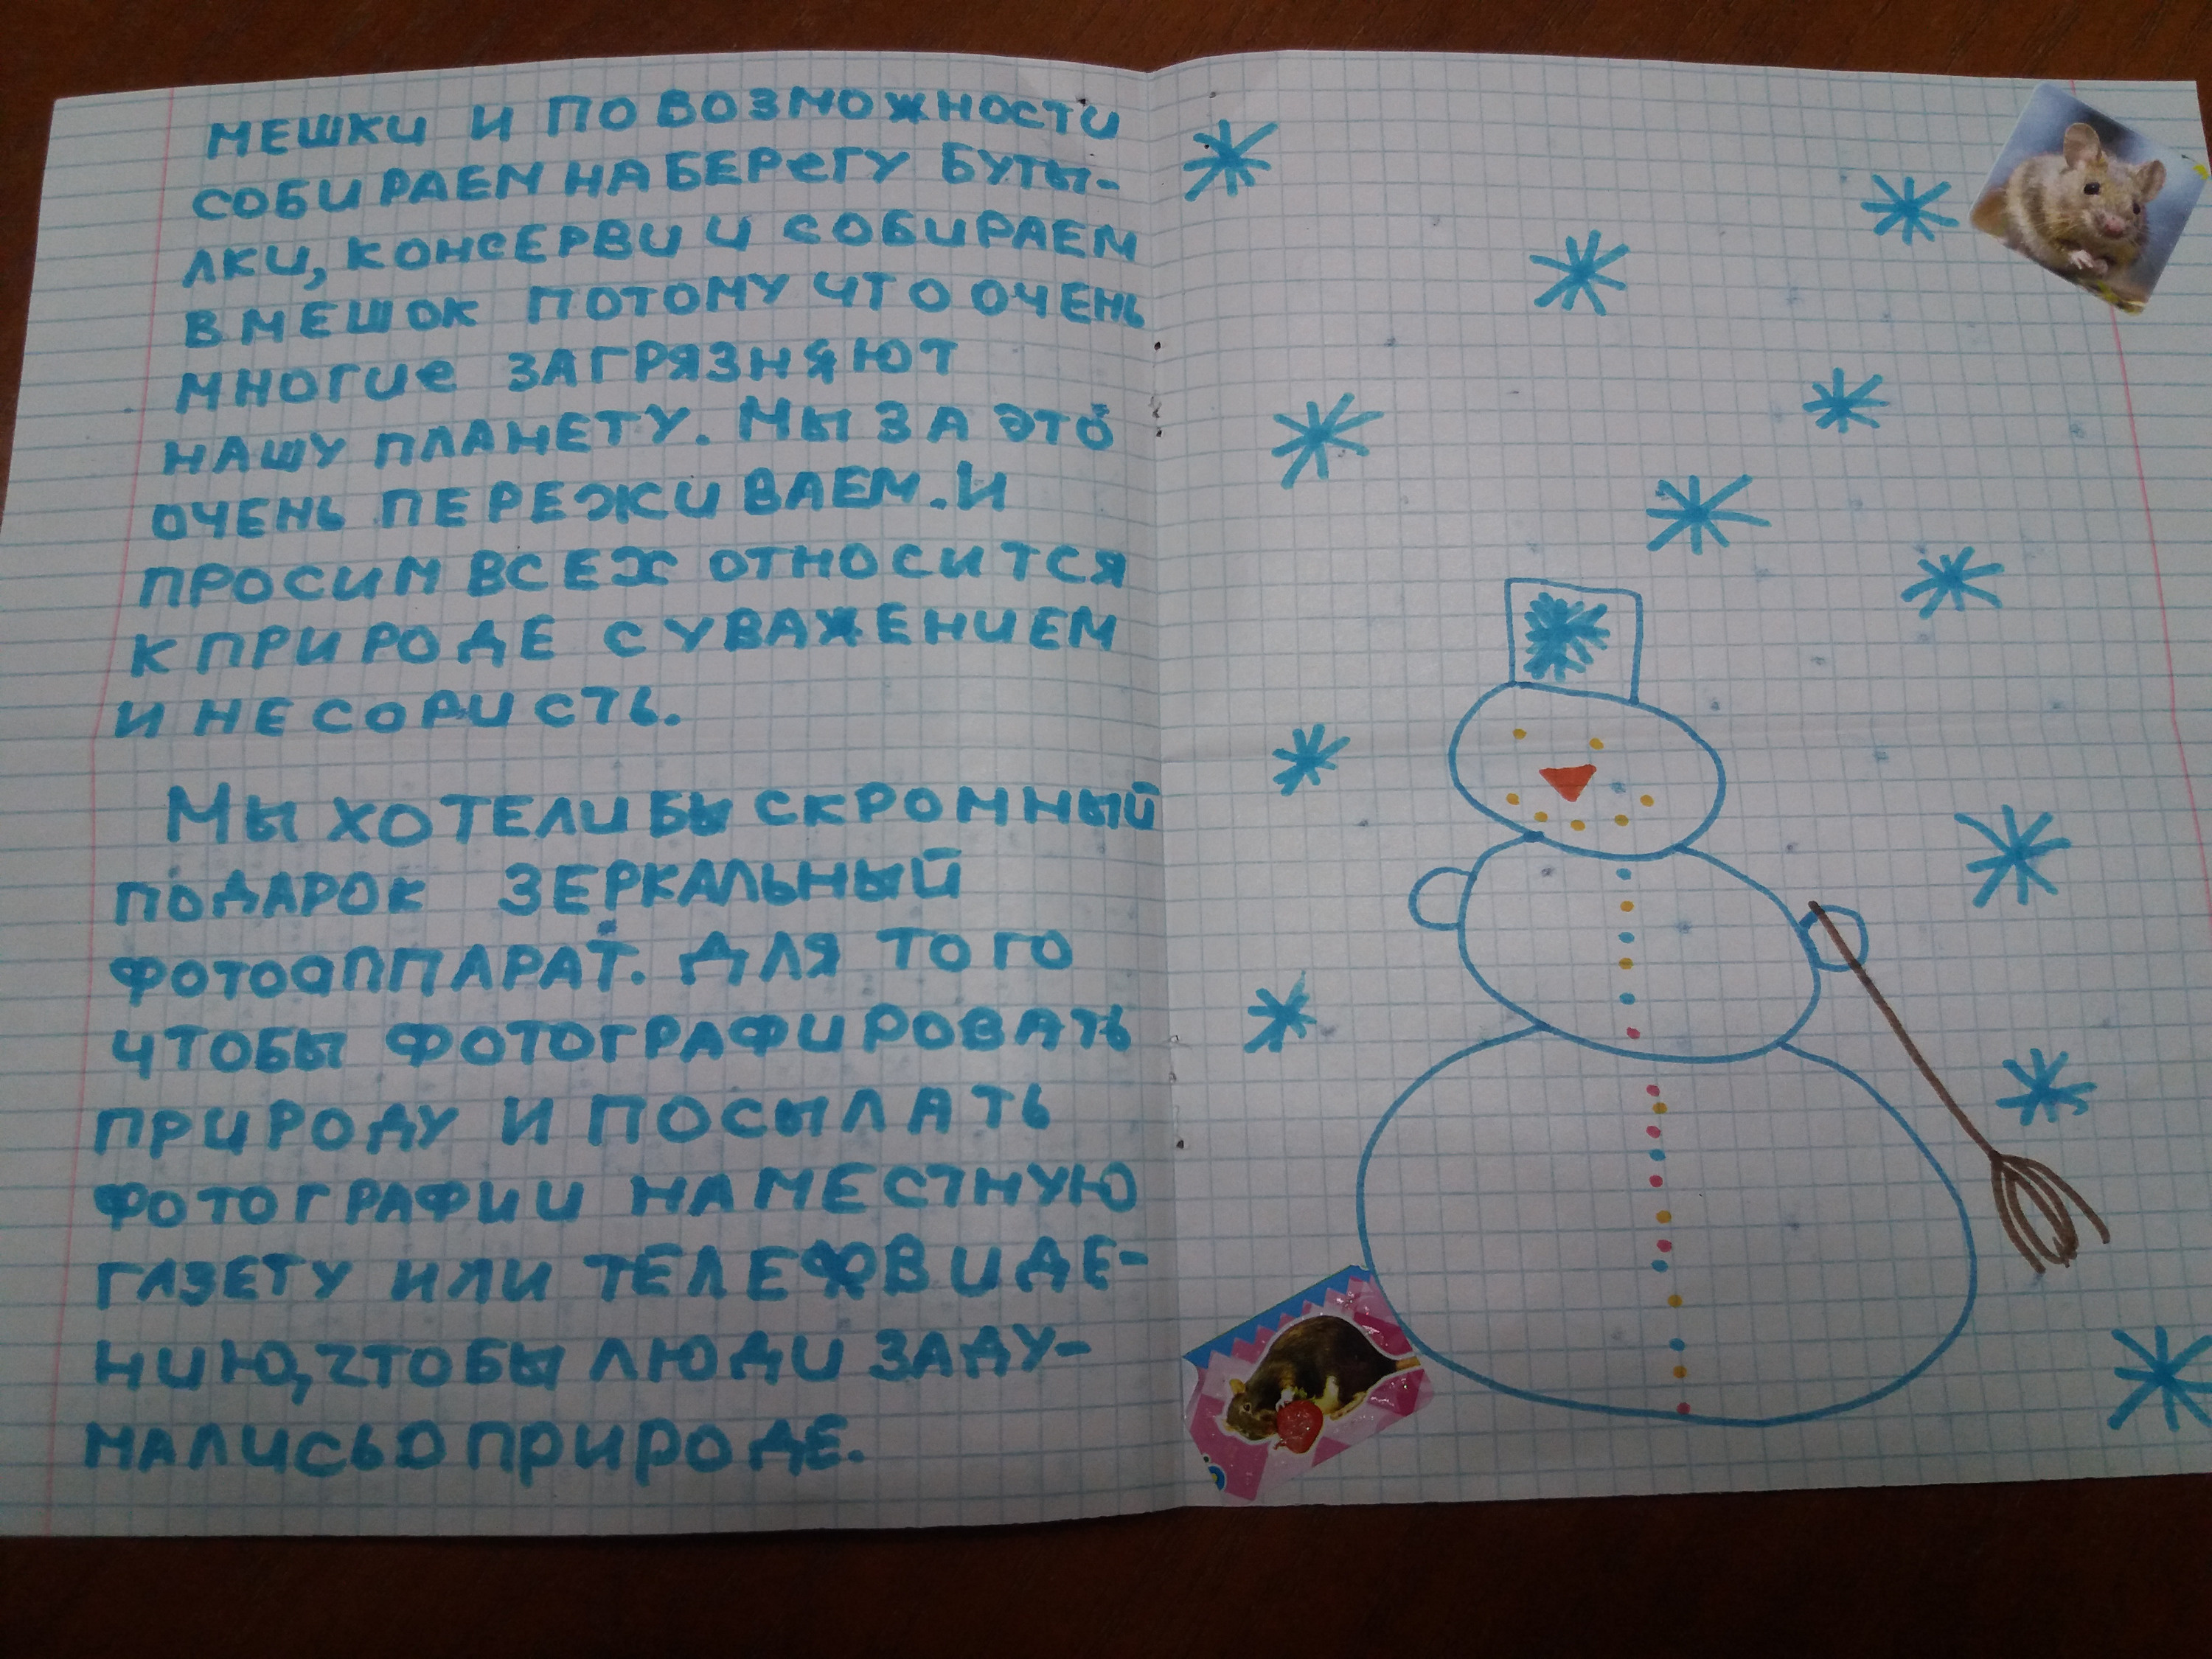 МЕШКИ И ПО ВОЗМОЖНОСТИ
СОБИРАЕМ НА БЕРЕГУ БУТЫ-
ЛКИ, КОНСЕРВИ И СОБИРАЕМ
В МЕШОК ПОТОМУ ЧТО ОЧЕНЬ
МНОГИЕ ЗАГРЯЗНЯЮТ
НАШУ ПЛАНЕТУ. МЫ ЗА ЭТО
ОЧЕНЬ ПЕРЕЖИВАЕМ. И
ПРОСИМ ВСЕХ ОТНОСИТСЯ
К ПРИРОДЕ С УВАЖЕНИЕМ
И НЕ СОРИСТЬ.
МЫ ХОТЕЛИ БЫ СКРОМНЫЙ
ПОДАРОК ЗЕРКАЛЬНЫЙ
ФОТОАППАРАТ. ДЛЯ ТОГО
ЧТОБЫ ФОТОГРАФИРОВАТЬ
ПРИРОДУ И ПОСЫЛАТЬ
ФОТОГРАФИИ НА МЕСТНУЮ
ГАЗЕТУ ИЛИ ТЕЛЕВИДЕ-
НИЮ, ЧТОБЫ ЛЮДИ ЗАДУ-
МАЛИСЬ О ПРИРОДЕ.